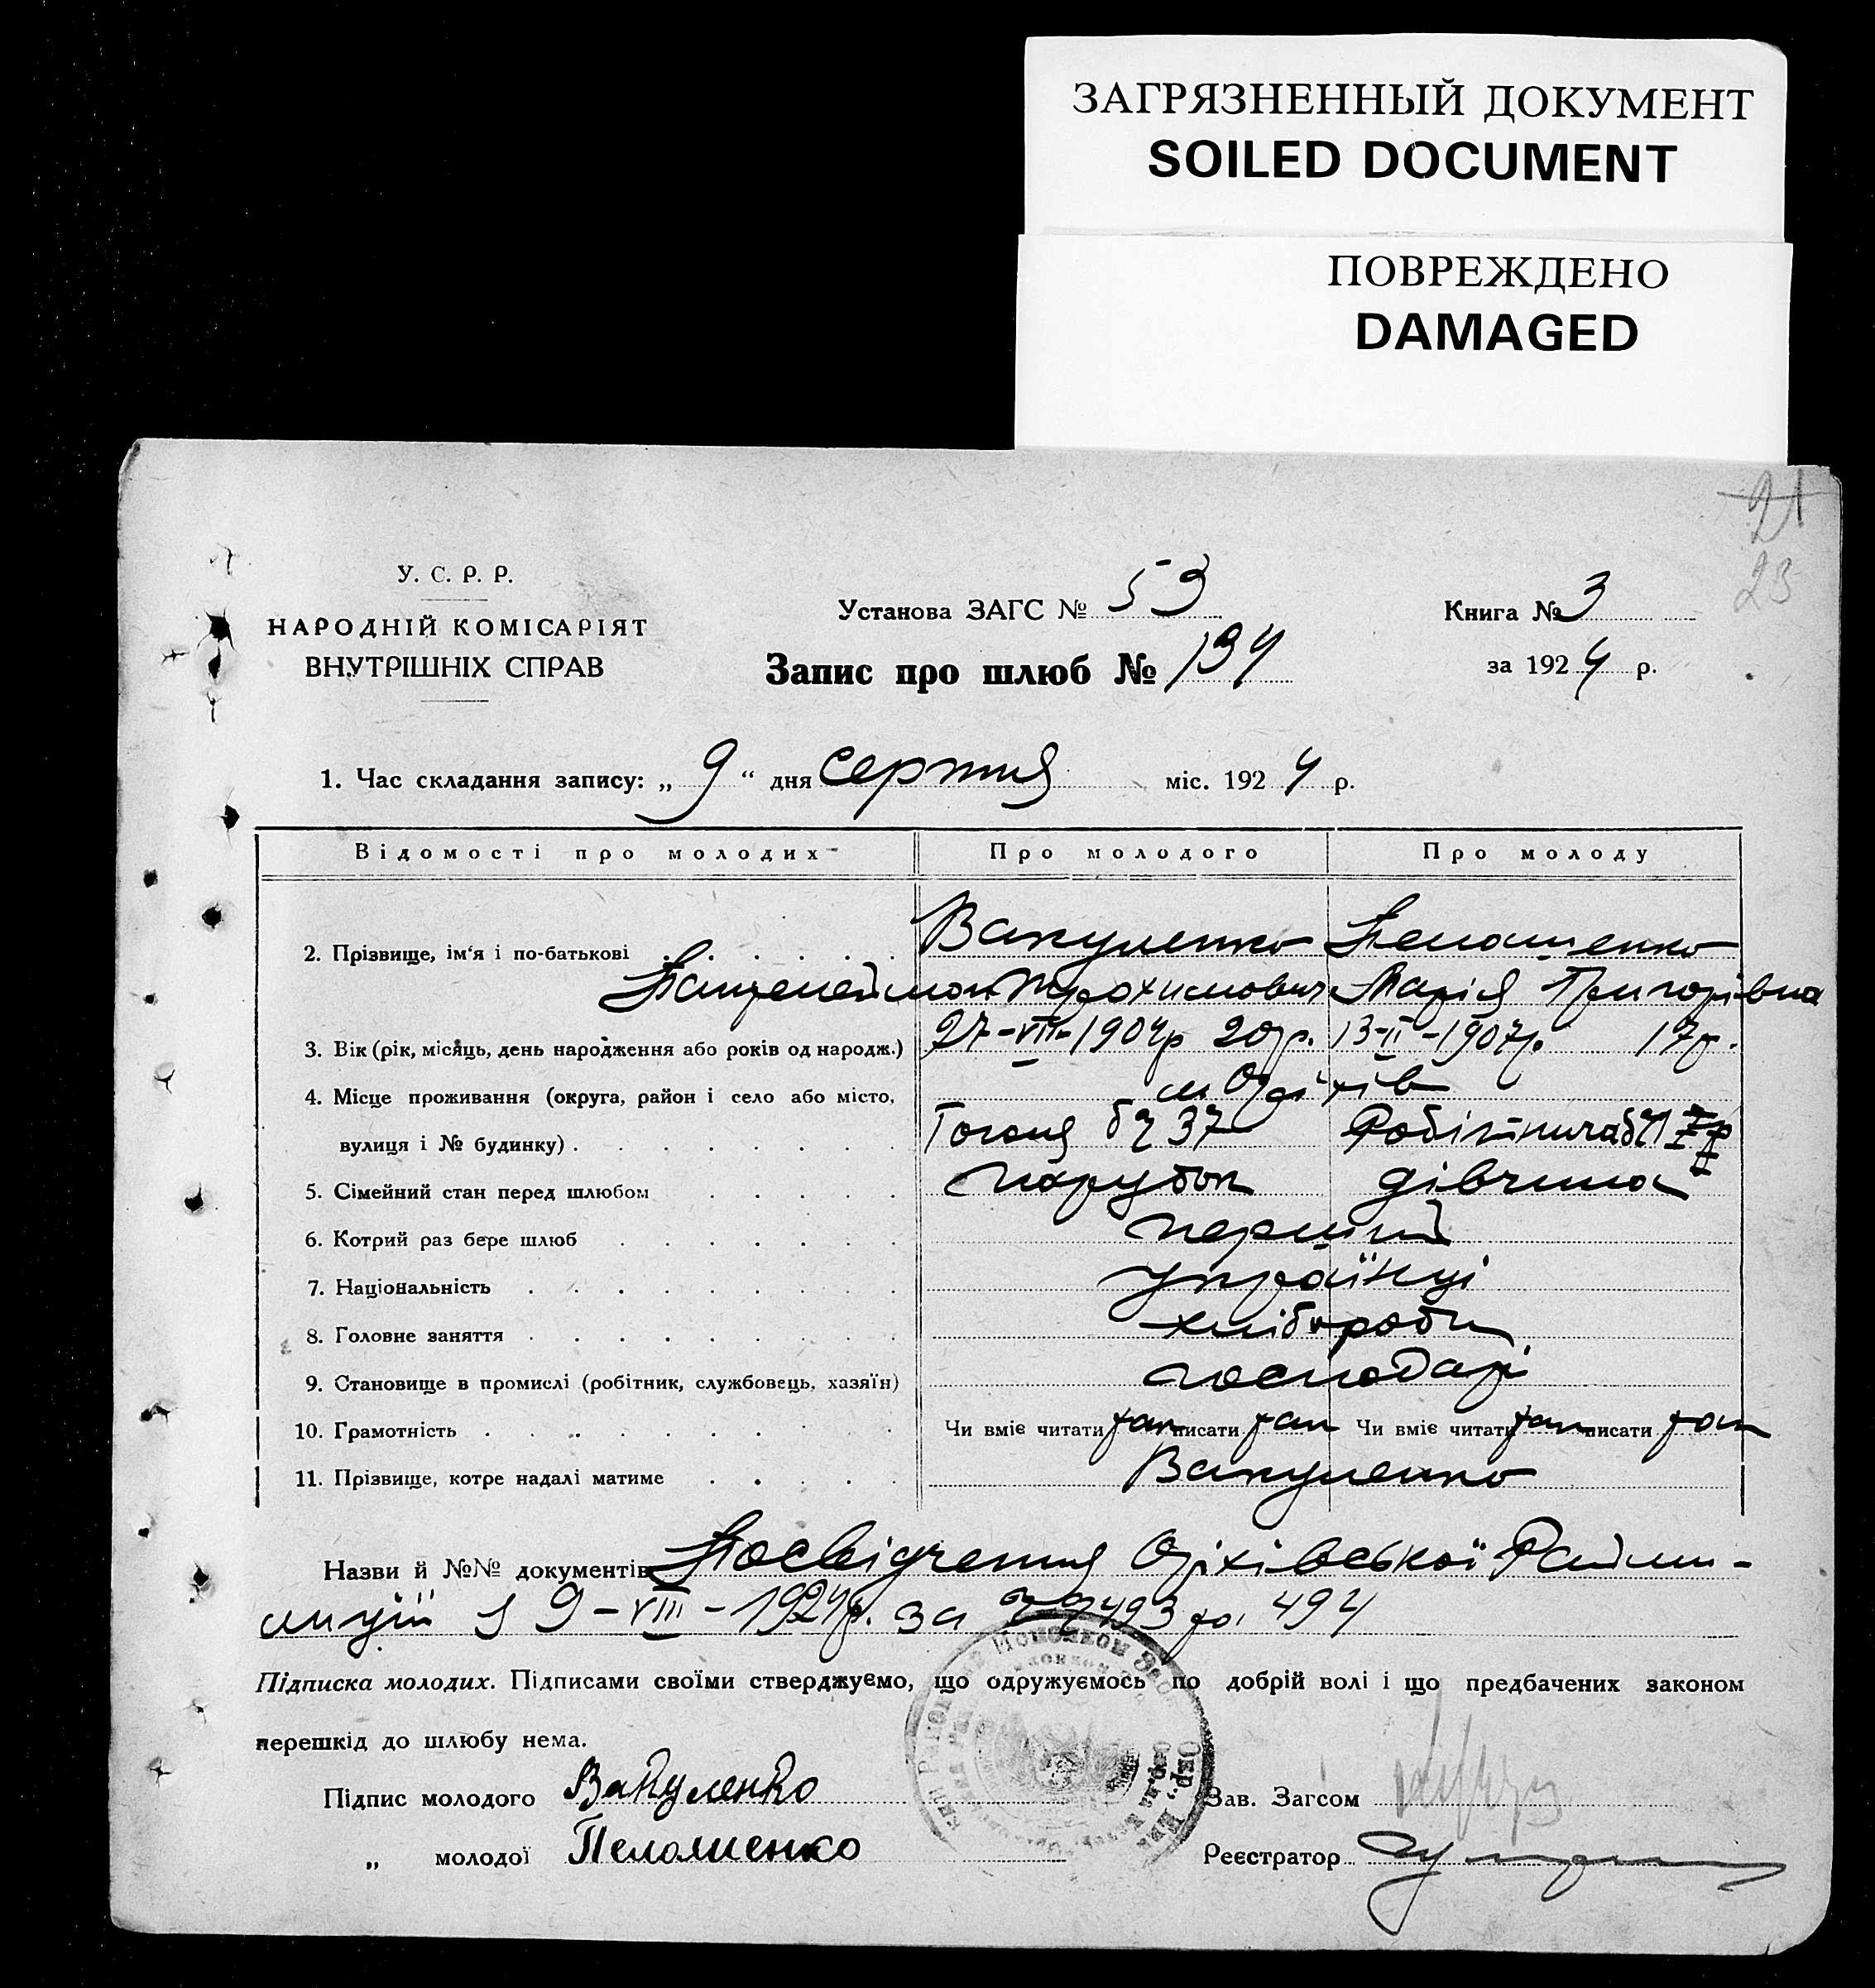 ЗАГРЯЗНЕННЫЙ ДОКУМЕНТ
SOILED DOCUMENT
ПОВРЕЖДЕНО
DAMAGED
21
23
У. С. Р. Р.
НАРОДНІЙ КОМІСАРІЯТ
ВНУТРІШНІХ СПРАВ
Установа ЗАГС № 53
Запис про шлюб № 134
Книга № 3
за 1924 р.
1. Час складання запису: „9“ дня серпня міс. 1924 р.
Відомості про молодих Про молодого Про молоду
2. Прізвище, ім‘я і по-батькові Вакуленко Пелашенко
Трохимович Марія Григорівна
3. Вік (рік, місяць, день народження або років од народж.) 27-VII-1904р 20р. 13-II-1907р. 17р.
4. Місце проживання (округа, район і село або місто, м Оріхів
вулиця і № будинку) Гоголя 37 Робітнича
5. Сімейний стан перед шлюбом парубок дівчина
6. Котрий раз бере шлюб перший
7. Національність українці
8. Головне заняття хлібороби
9. Становище в промислі (робітник, службовець, хазяїн) господарі
10. Грамотність Чи вміє читати так писати так Чи вміє читати так писати так
11. Прізвище, котре надалі матиме Вакуленко
Назви й №№ документів Посвідчення Оріхівської Райми-
ліції з 9-VIII-1924р. за 493 та 494
Підписка молодих. Підписами своїми стверджуємо, що одружуємось по добрій волі і що предбачених законом
перешкід до шлюбу нема.
Підпис молодого Вакуленко
„ молодої Пелашенко
Зав. Загсом
Реєстратор